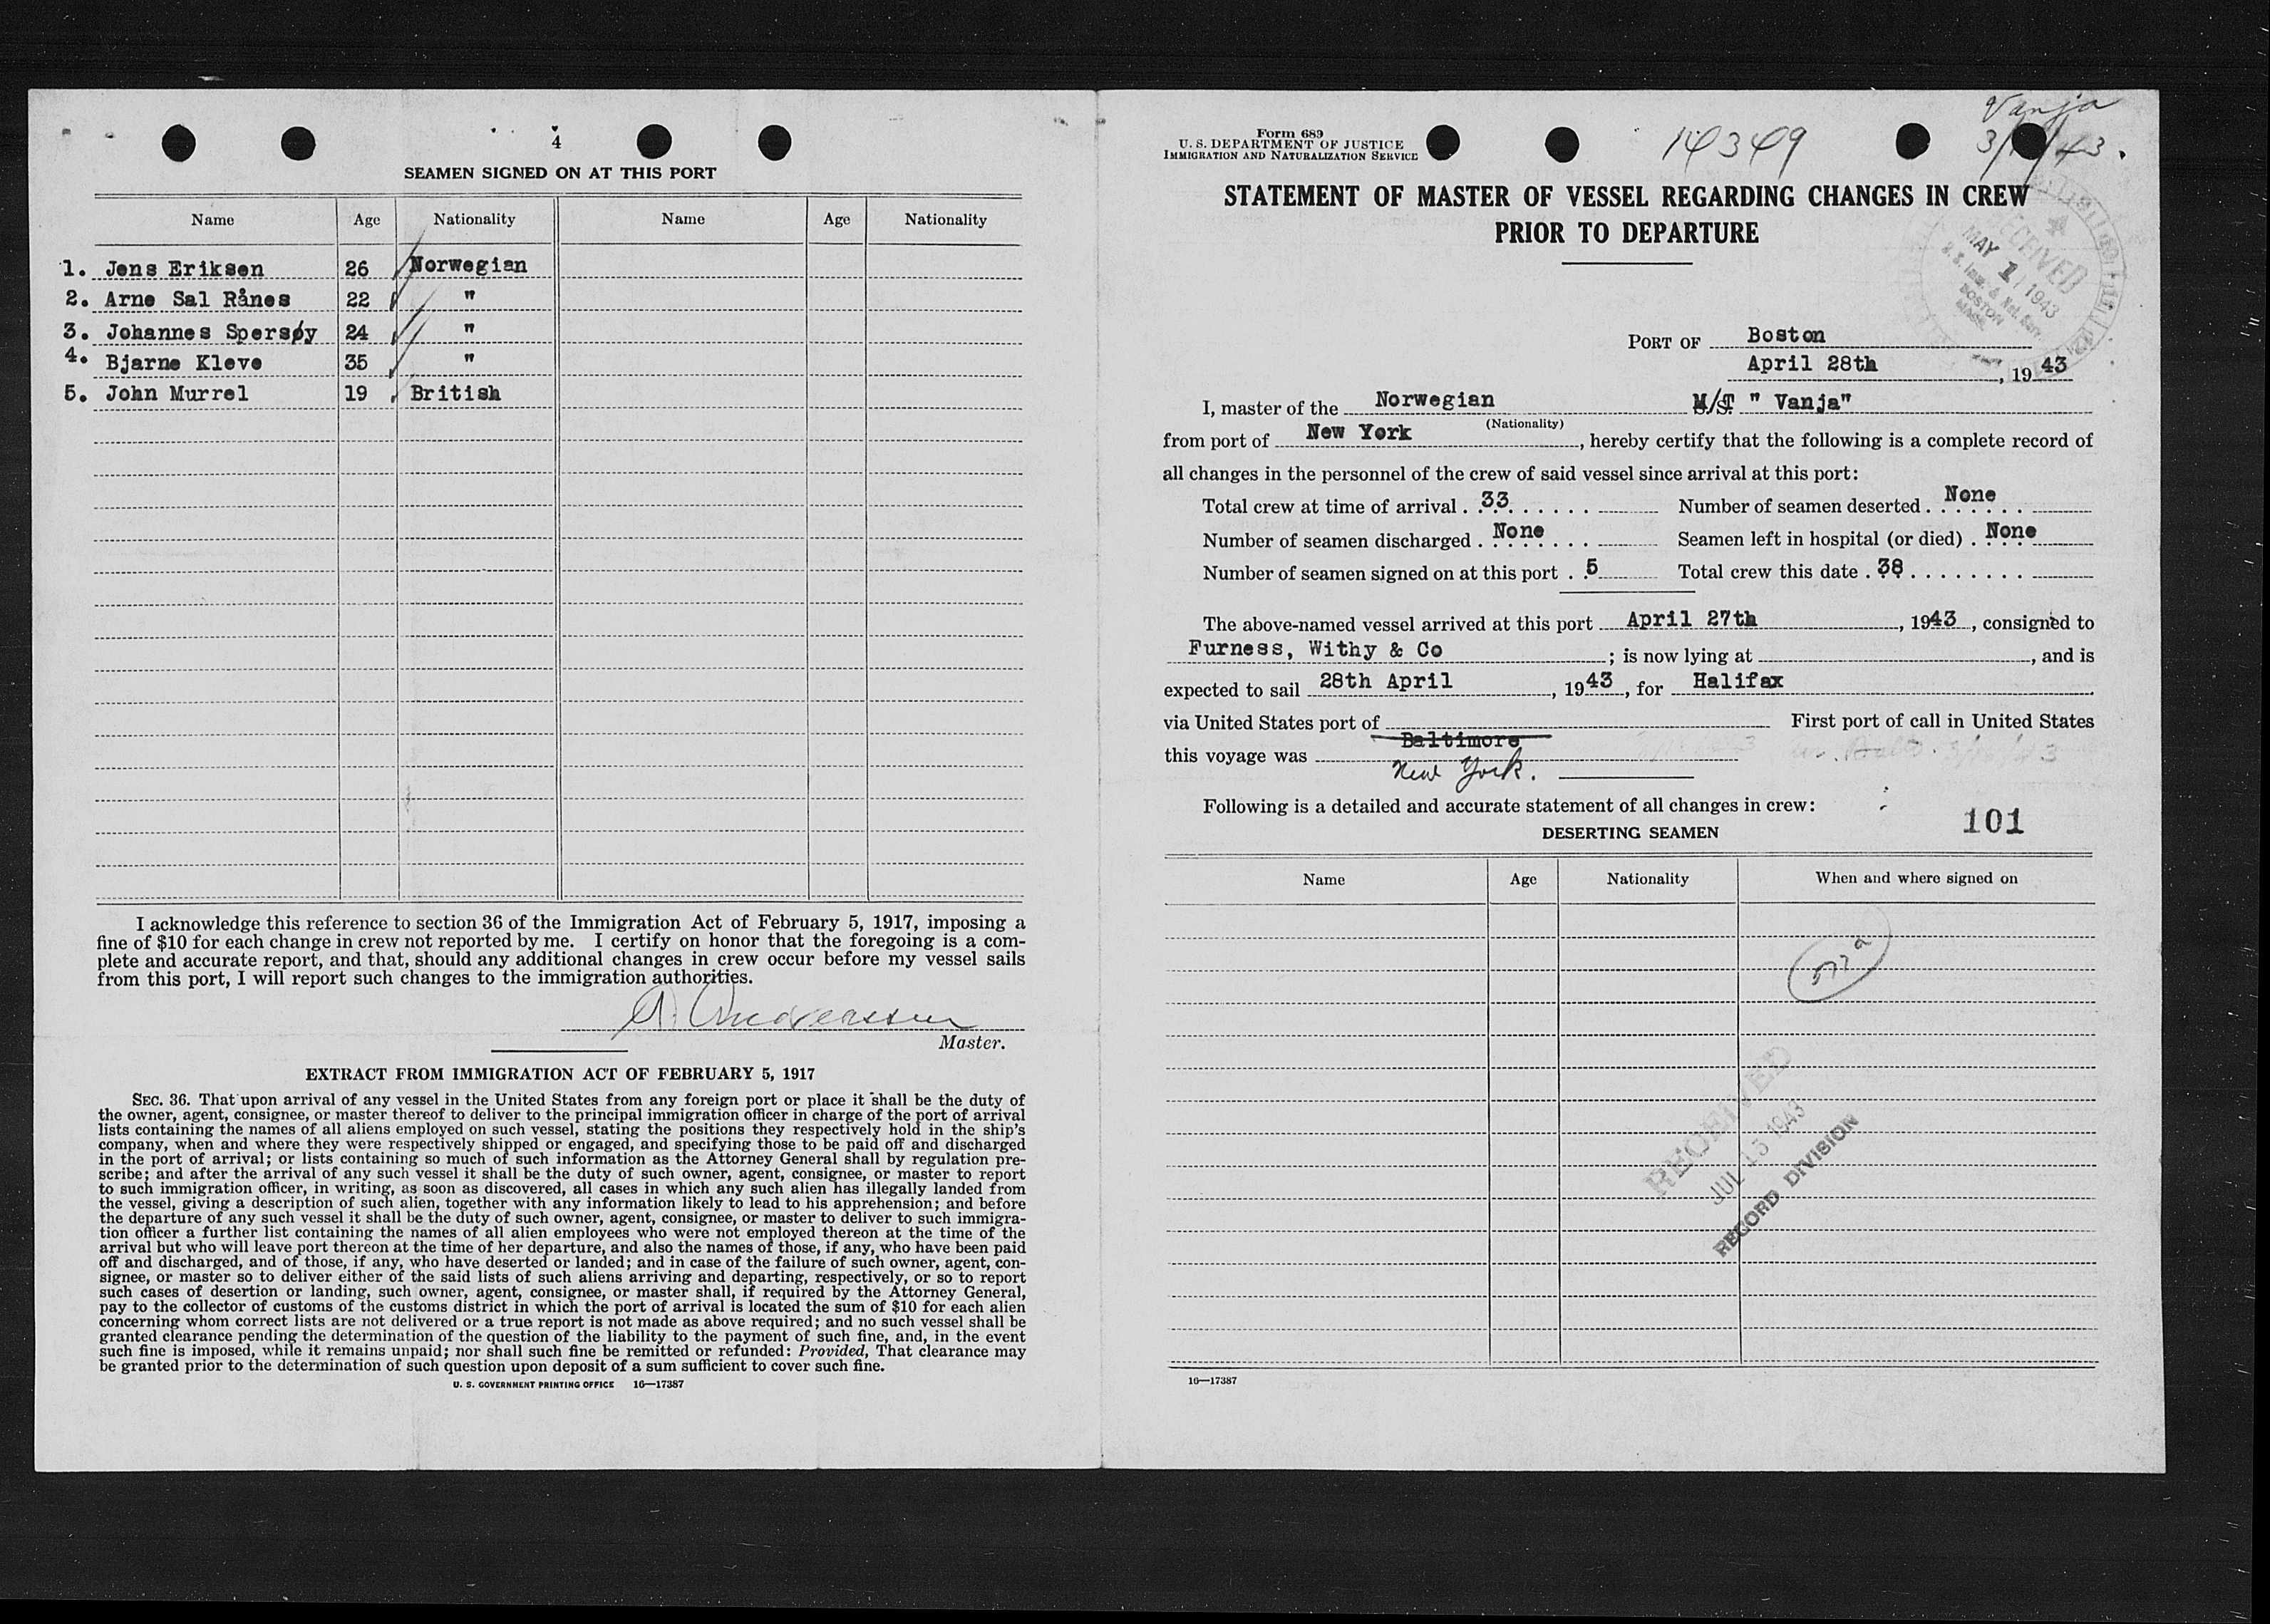 4
SEAMEN SIGNED ON AT THIS PORT
Name Age Nationality Name Age Nationality
1. Jens Eriksen 26 Norwegian
2. Arne Sal Rånes 22 "
3. Johannes Spersøy 24 "
4. Bjarne Kleve 35 "
5. John Murrel 19 British
I acknowledge this reference to section 36 of the Immigration Act of February 5, 1917, imposing a
fine of $10 for each change in crew not reported by me. I certify on honor that the foregoing is a com-
plete and accurate report, and that, should any additional changes in crew occur before my vessel sails
from this port, I will report such changes to the immigration authorities.
A. Andreassen
Master.
EXTRACT FROM IMMIGRATION ACT OF FEBRUARY 5, 1917
SEC. 36. That upon arrival of any vessel in the United States from any foreign port or place it shall be the duty of
the owner, agent, consignee, or master thereof to deliver to the principal immigration officer in charge of the port of arrival
lists containing the names of all aliens employed on such vessel, stating the positions they respectively hold in the ship's
company, when and where they were respectively shipped or engaged, and specifying those to be paid off and discharged
in the port of arrival; or lists containing so much of such information as the Attorney General shall by regulation pre-
scribe; and after the arrival of any such vessel it shall be the duty of such owner, agent, consignee, or master to report
to such immigration officer, in writing, as soon as discovered, all cases in which any such alien has illegally landed from
the vessel, giving a description of such alien, together with any information likely to lead to his apprehension; and before
the departure of any such vessel it shall be the duty of such owner, agent, consignee, or master to deliver to such immigra-
tion officer a further list containing the names of all alien employees who were not employed thereon at the time of the
arrival but who will leave port thereon at the time of her departure, and also the names of those, if any, who have been paid
off and discharged, and of those, if any, who have deserted or landed; and in case of the failure of such owner, agent, con-
signee, or master so to deliver either of the said lists of such aliens arriving and departing, respectively, or so to report
such cases of desertion or landing, such owner, agent, consignee, or master shall, if required by the Attorney General,
pay to the collector of customs of the customs district in which the port of arrival is located the sum of $10 for each alien
concerning whom correct lists are not delivered or a true report is not made as above required; and no such vessel shall be
granted clearance pending the determination of the question of the liability to the payment of such fine, and, in the event
such fine is imposed, while it remains unpaid; nor shall such fine be remitted or refunded: Provided, That clearance may
be granted prior to the determination of such question upon deposit of a sum sufficient to cover such fine.
U. S. GOVERNMENT PRINTING OFFICE 16—17387
Form 689
U. S. DEPARTMENT OF JUSTICE
IMMIGRATION AND NATURALIZATION SERVICE
14349
Vanja
STATEMENT OF MASTER OF VESSEL REGARDING CHANGES IN CREW
PRIOR TO DEPARTURE
RECEIVED
MAY 1 1943
U. S. Imm. & Nat. Serv.
BOSTON
MASS.
PORT OF Boston
April 28th, 1943
I, master of the Norwegian M/T " Vanja"
(Nationality)
from port of New York, hereby certify that the following is a complete record of
all changes in the personnel of the crew of said vessel since arrival at this port:
Total crew at time of arrival . 33 Number of seamen deserted . None
Number of seamen discharged . None Seamen left in hospital (or died) . None
Number of seamen signed on at this port . 5 Total crew this date . 38
The above-named vessel arrived at this port April 27th, 1943, consigned to
Furness, Withy & Co ; is now lying at , and is
expected to sail 28th April, 1943, for Halifax
via United States port of First port of call in United States
this voyage was Baltimore
New York.
Following is a detailed and accurate statement of all changes in crew:
101
DESERTING SEAMEN
Name Age Nationality When and where signed on
RECEIVED
JUL 15 1943
RECORD DIVISION
16—17387